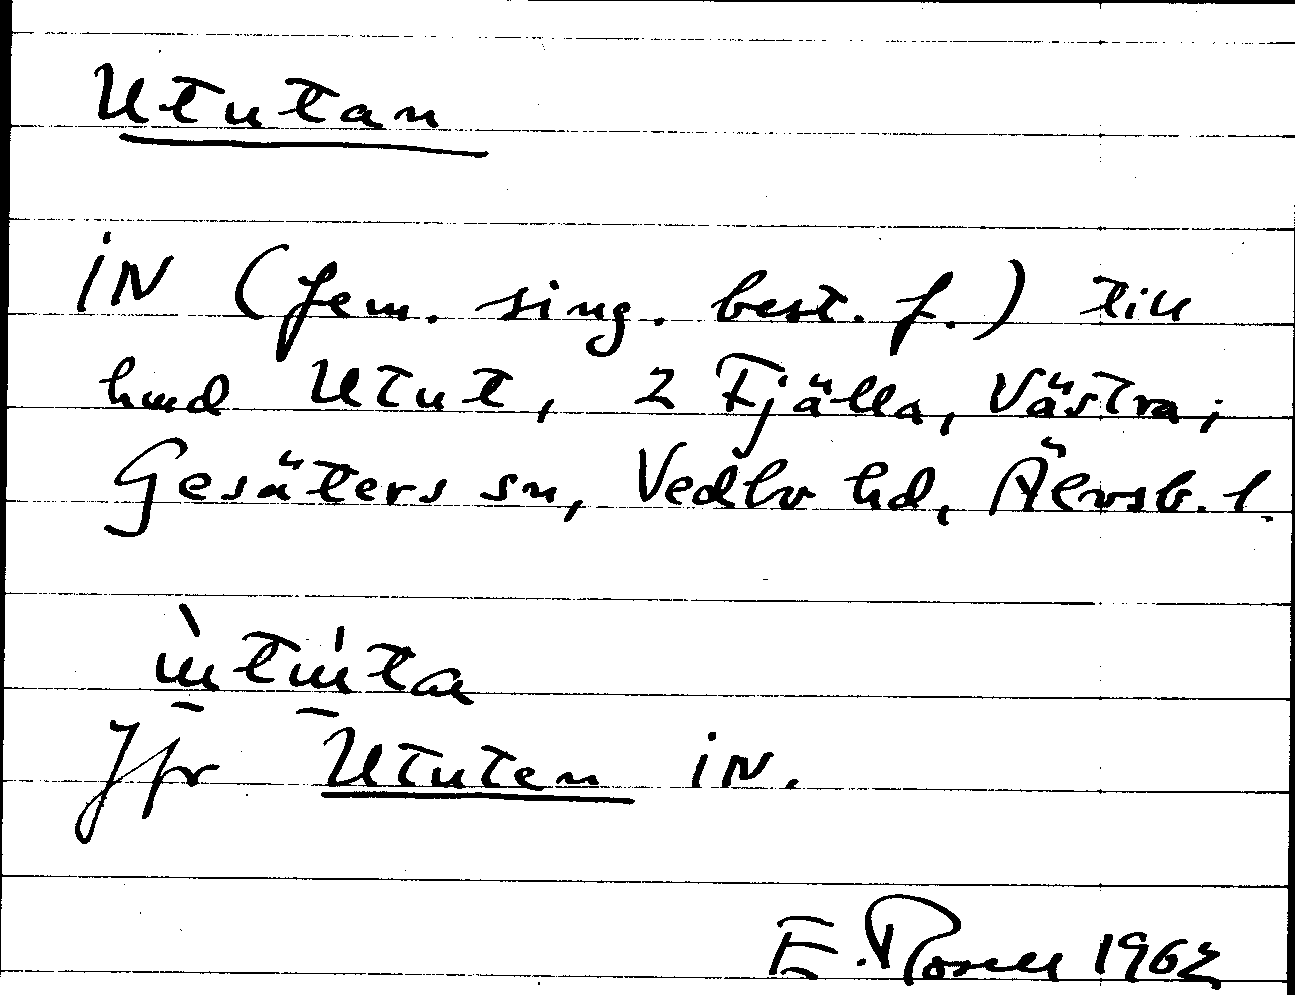 Ututan
iN (fem. sing. best. f.) till
hmd Utut, 2 Fjälla, Västra,
Gesäters sn, Vedbo hd, Älvsb. l.
Jfr Ututen iN.
E. 1962